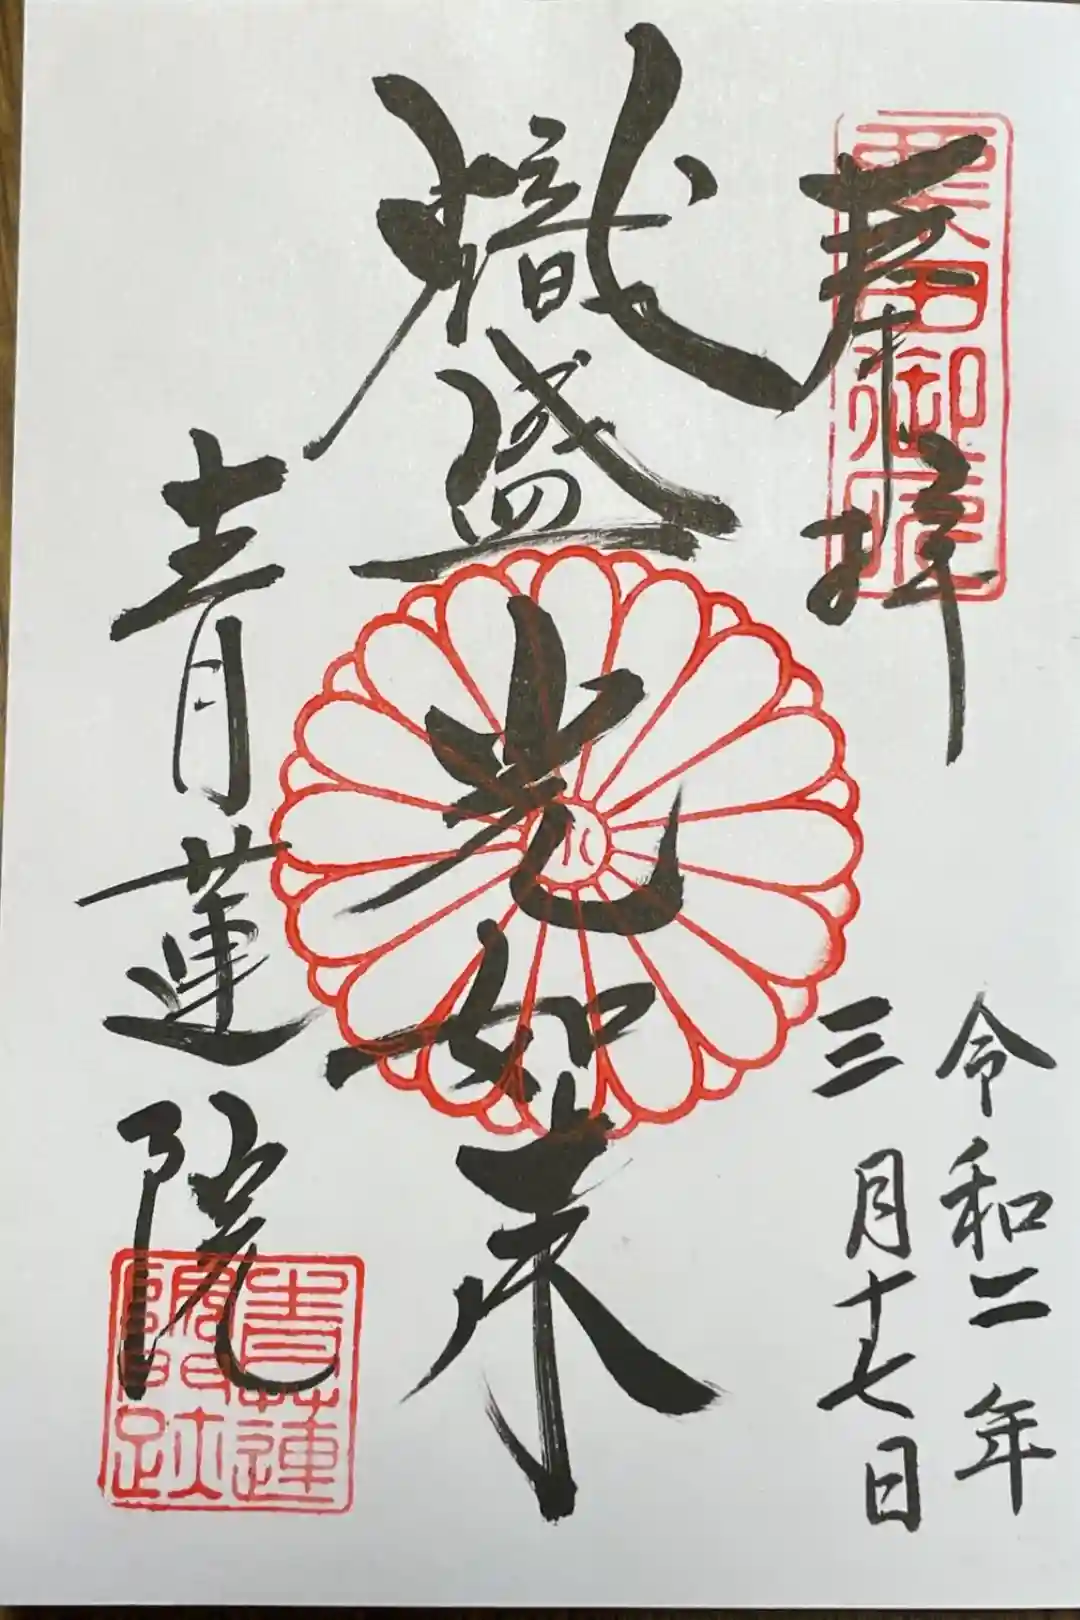 奉拝
令和二年
三月十七日
熾盛光如来
青蓮院
粟田御所
青蓮院門跡